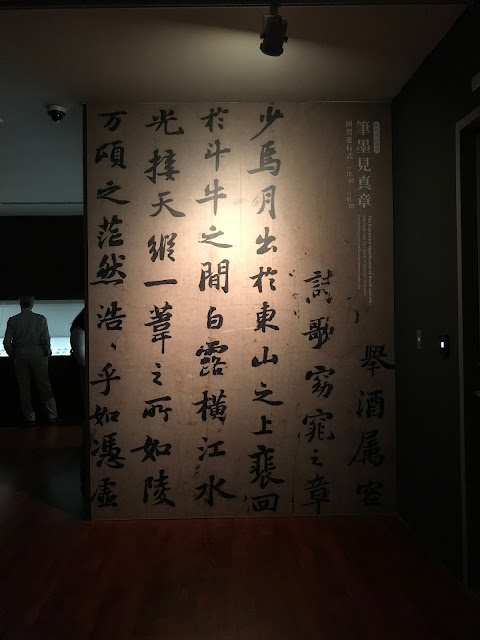 筆墨見真章
國寶進行式
舉酒属客
詩歌窈窕之章
少焉月出於東山之上裵回
於斗牛之間白露橫江水
光接天縱一葦之所如陵
万頃之茫然浩〻乎如憑虛